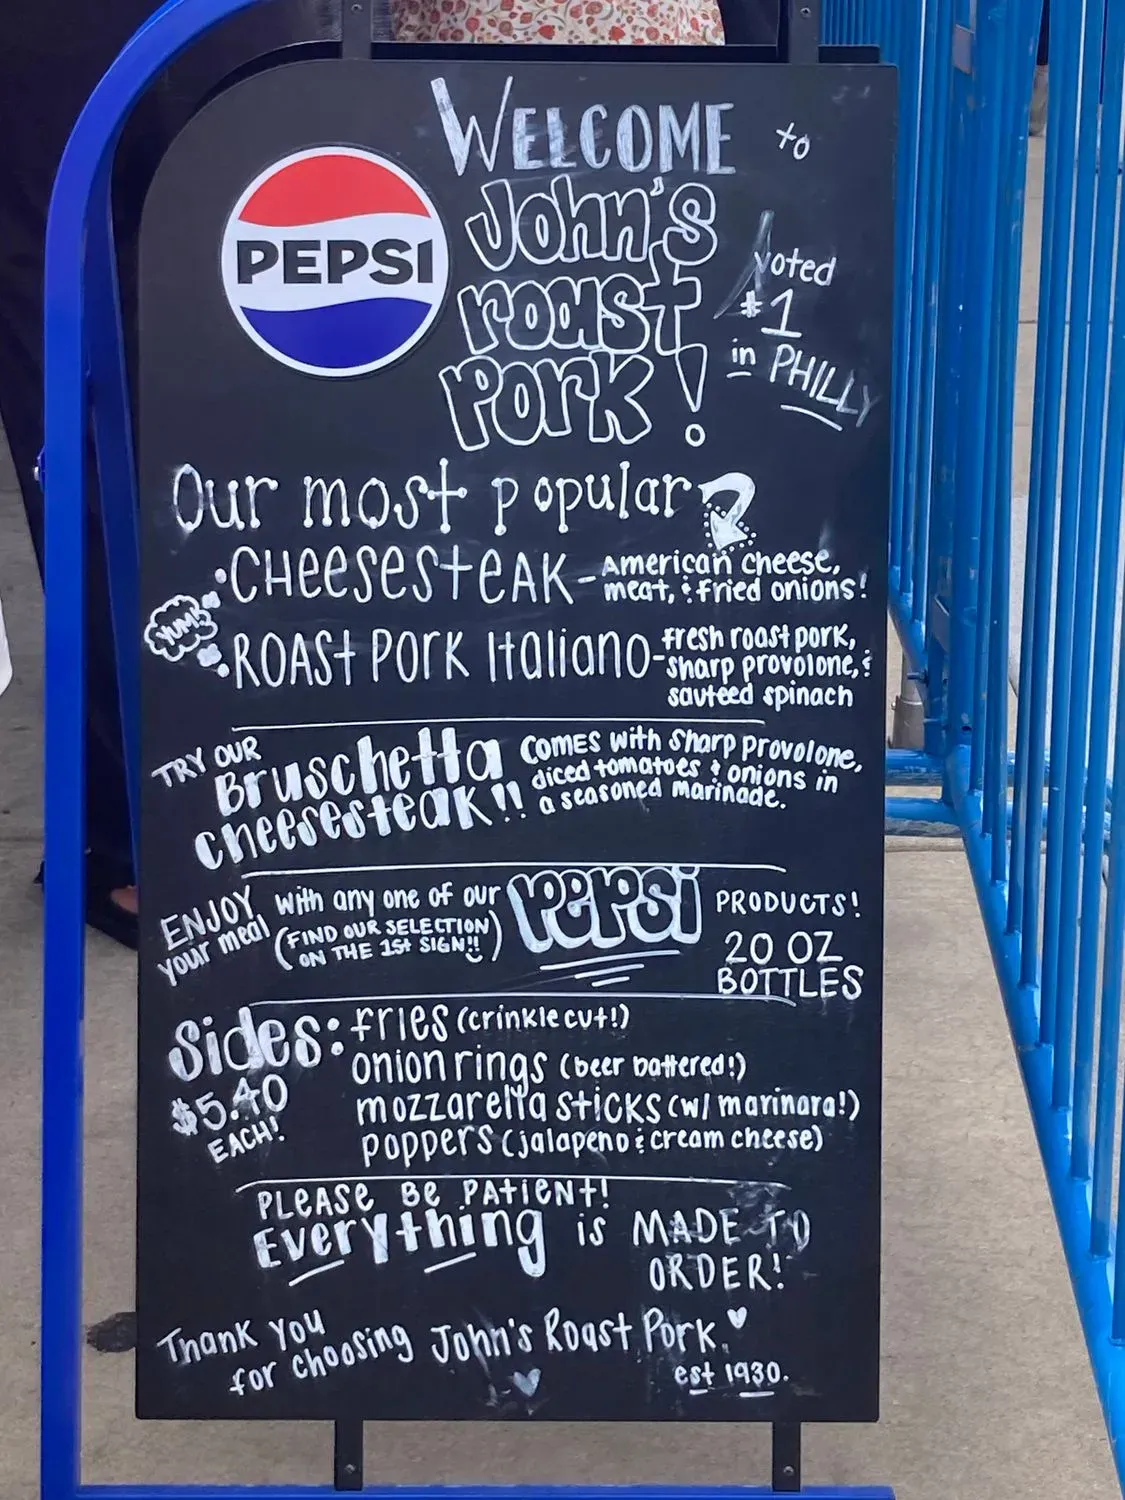 WELCOME to
PEPSI
John's
roast
Pork!
voted
#1
in PHILLY
Our most popular
• CHeesesteAK - American cheese,
meat, & fried onions!
YUM!
• ROAST PORK Italiano - fresh roast pork,
sharp provolone, &
sauteed spinach
TRY OUR
Bruschetta
cheesesteak!!
comes with sharp provolone,
diced tomatoes & onions in
a seasoned marinade.
ENJOY
your meal
with any one of our
(FIND OUR SELECTION
ON THE 1st SIGN!!)
PEPSI
PRODUCTS!
20 OZ
BOTTLES
Sides:
$5.40
EACH!
fries (crinkle cut!)
onion rings (beer battered!)
mozzarella sticks (w/ marinara!)
poppers (jalapeno & cream cheese)
PLEASE BE PATIENT!
Everything is MADE TO
ORDER!
Thank you
for choosing John's Roast Pork.
est 1930.